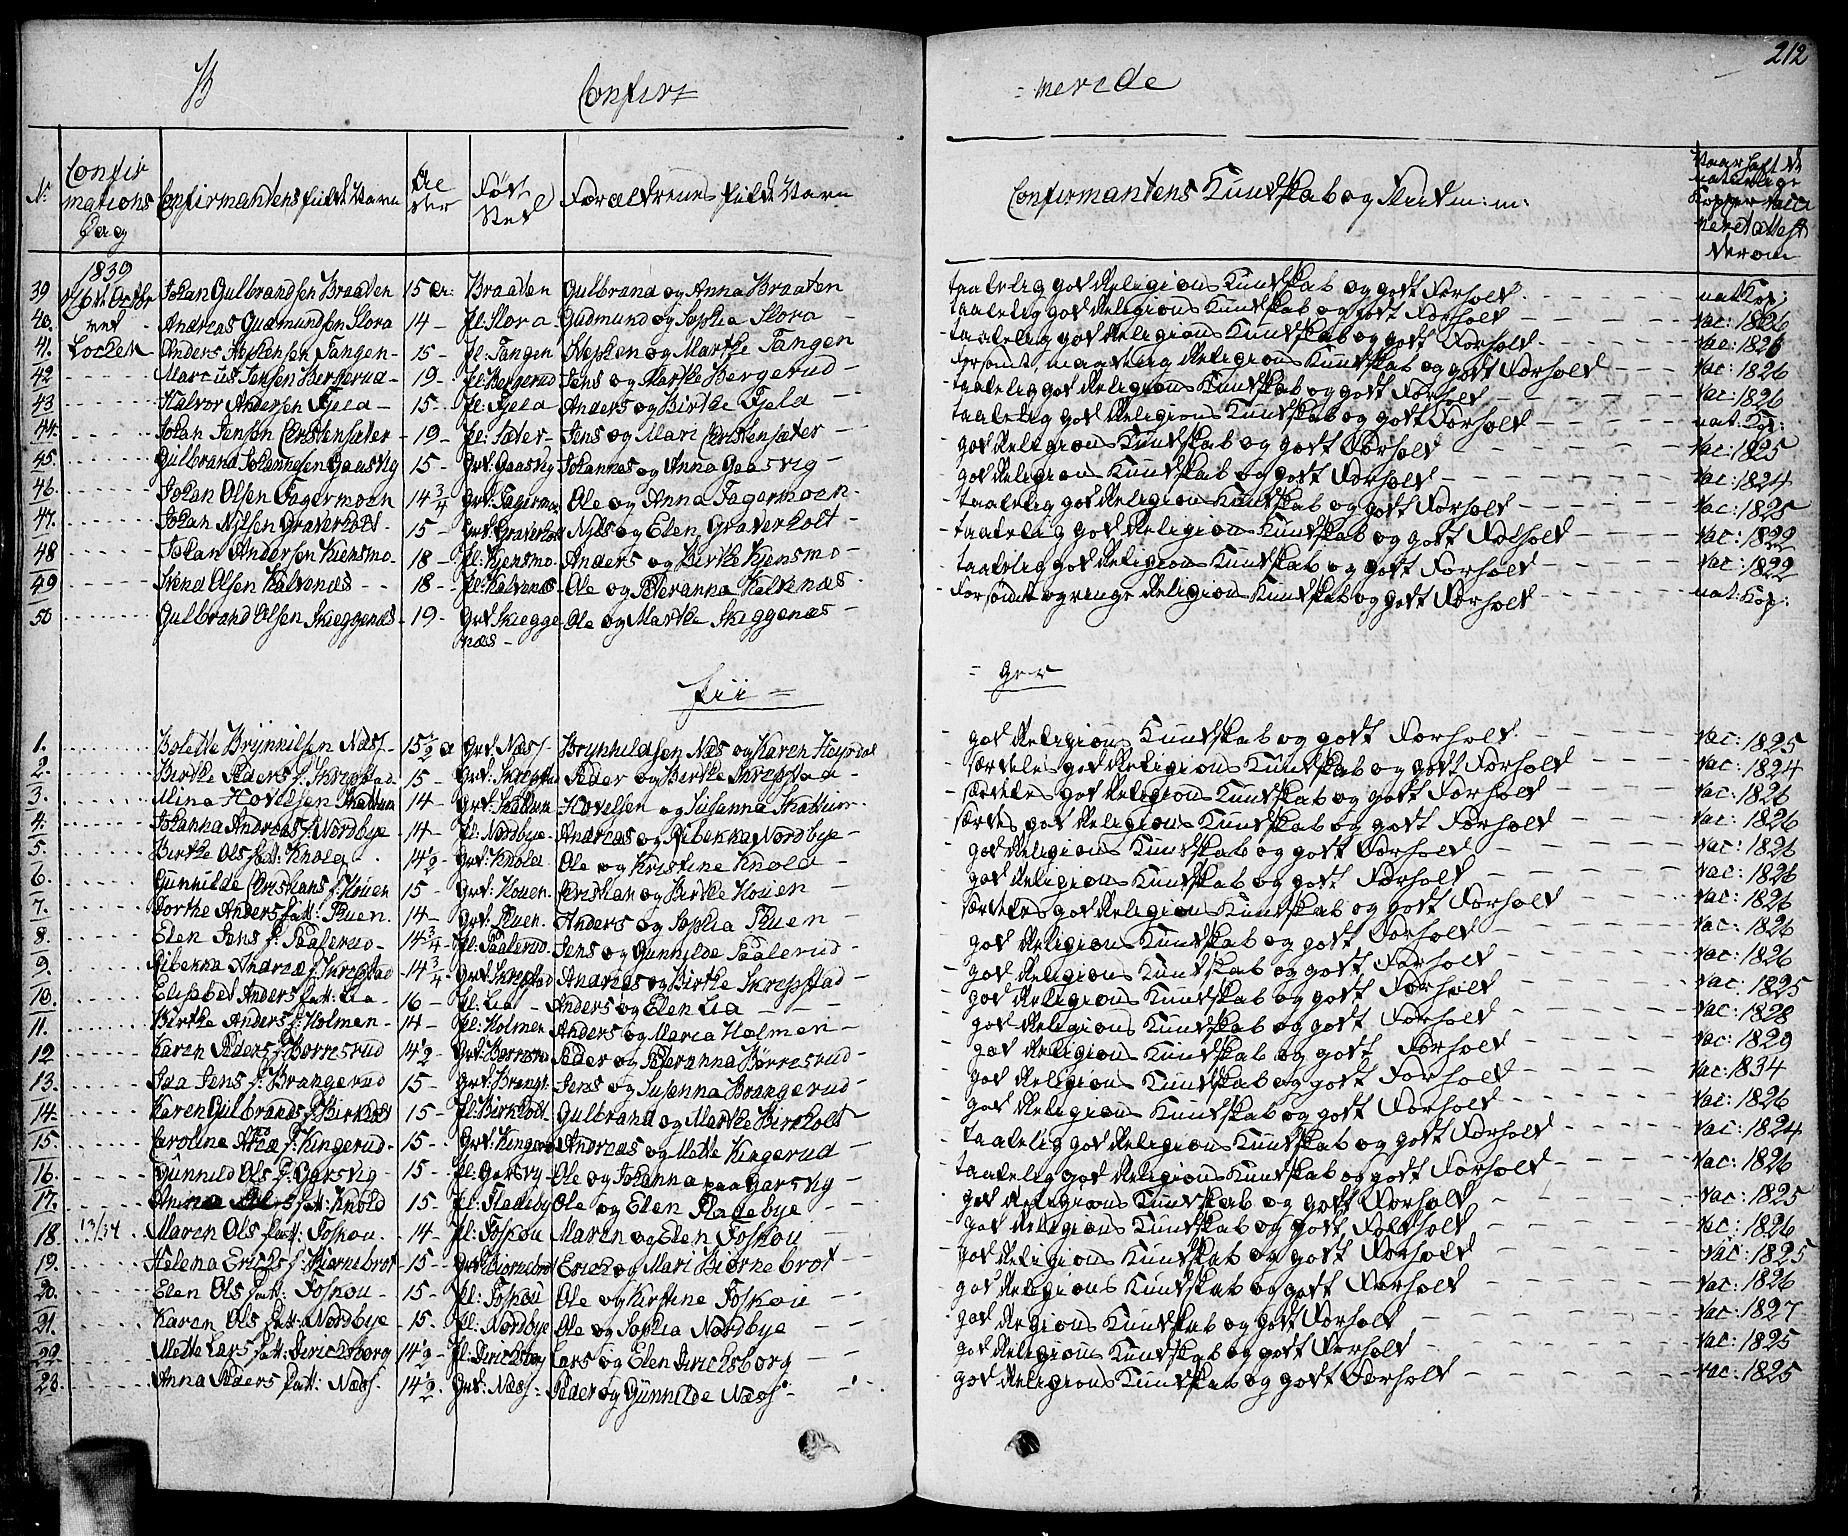 B Confir= =merede 212
N: Confirmations Dag Confirmantens fulde Navn Alder Føde Sted Forældrenes fulde Navn Confirmantens Kundskab og Naar haft de naturlige Kopper
1839
39 Johan Gulbrandsen Braaten 15 Braaten Gulbrand og Anna Braaten taalelig god Religions Kundskab og godt Forhold nat: Kop:
40. Andreas Gudmundsen Slora 14 Pl: Slora Gudmund og Sophia Slora taalelig god Religions Kundskab og godt Forhold Vac: 1826
41. Anders Tangen 15 Pl: Tangen og Marthe Tangen taalelig god Religions Kundskab og godt Forhold Vac: 1826
42 Marcus Jensen Bergerud 19 Pl: Bergerud Jens og Marthe Bergerud forsømt, maadelig Religions Kundskab og godt Forhold Vac: 1826
43 Halvor Andersen Fjeld 15 Pl: Fjeld Anders og Birthe Fjeld taalelig god Religions Kundskab og godt Forhold Vac: 1826
44. Johan Jensen Christensæter 19 Pl: Sæter Jens og Mari Christensæter taalelig god Religions Kundskab og godt Forhold nat. Kop:
45. Gulbrand Johannesen Gaasvig 15 Grd: Gaasvig Johannes og Anna Gaasvig god Religions Kundskab og godt Forhold Vac: 1825
46. Johan Olsen Fagermoen 14 3/4 Grd: Ole og Anna Fagermoen god Religions Kundskab og godt Forhold Vac: 1824
47. Johan Nilsen Graverholt 15 Grd: Nils og Elen Graverholt taalelig god Religions Kundskab og godt Forhold Vac: 1825
48 Johan Andersen Kjensmo 18 Pl: Kjensmo Anders og Birthe Kjensmo taalelig god Religions Kundskab og godt Forhold Vac: 1822
49 Svend Olsen Kalvenæs 18 Pl: Kalvenæs Ole og Kalvenæs taalelig god Religions Kundskab og godt Forhold Vac: 1822
50 Gulbrand Olsen Skieggenæs 19 Grd: Skieggenæs Ole og Marthe Skieggenæs Forsømt og ringe Religions Kundskab og godt Forhold nat: Kop:
Pii= =ger
1. Bolette Næss 15 1/2 Grd: Næss Næs og Karen god Religions Kundskab og godt Forhold Vac: 1825
2. Birthe Peders f: Skrepstad 15 Grd: Skrepstad Peder og Birthe Skrepstad særdeles god Religions Kundskab og godt Forhold Vac: 1824
3. Mina 14 Grd: og Susanna særdeles god Religions Kundskab og godt Forhold Vac: 1826
4. Johanna Andreas f: Nordbye 14 Pl: Nordbye Andreas og Ribekka Nordbye god Religions Kundskab og godt Forhold Vac: 1826
5. Birthe Ols datt: Knold 14 1/2 Grd: Knold Ole og Kristine Knold god Religions Kundskab og godt Forhold Vac: 1826
6. Gunhilde Christians f: Houen 15 Grd: Houen Christian og Birthe Houen god Religions Kundskab og godt Forhold Vac: 1826
7. Dorthe Anders datt: Ruen 14 Grd: Ruen Anders og Sophia Ruen særdeles god Religions Kundskab og godt Forhold Vac: 1826
8. Elen Jens f: Paalerud 14 3/4 Pl: Paalerud Jens og Gunhilde Paalerud god Religions Kundskab og godt Forhold Vac: 1826
9. Ribekka Andreæ f: Skrepstad 14 3/4 Grd: Skrepstad Andreas og Birthe Skrepstad god Religions Kundskab og godt Forhold Vac: 1826
10. Elisbet Anders datt: Lia 16 Pl: Lia Anders og Elen Lia god Religions Kundskab og godt Forhold Vac: 1825
11. Birthe Anders f: Holmen 14 Pl: Holmen Anders og Maria Holmen god Religions Kundskab og godt Forhold Vac: 1828
12 Karen Peders f: Børresrud 14 1/2 Grd: Peder og Børresrud god Religions Kundskab og godt Forhold Vac: 1829
13. Ida Jens f: Brangerud 15 Grd: Brangr: Jens og Susanna Brangerud god Religions Kundskab og godt Forhold Vac: 1834
14. Karen Gulbrands f: Birkholt 15 Pl: Birkholt Gulbrand og Marthe Birkholt god Religions Kundskab og godt Forhold Vac: 1826
15. Caroline Andreæ f: Kingerud 15 Grd: Kingerud Andreas og Mette Kingerud taalelig god Religions Kundskab og godt Forhold Vac: 1824
16. Gunnild Ols f: Garsvig 15 Pl: Garsvig Ole og Johanna paa Garsvig taalelig god Religions Kundskab og godt Forhold Vac: 1826
17. Anna Ols datt: Knold 15 Pl: Fladebye Ole og Elen Fladebye god Religions Kundskab og godt Forhold Vac: 1825
18. 13/34 Maren Ols datt: Foskou 14 Pl: Foskou Maren og Elen Foskou god Religions Kundskab og godt Forhold Vac: 1826
19. Helena Erichs f: Bjørnebrot 15 Grd: Bjørnebrot Erich og Mari Bjørnebrot god Religions Kundskab og godt Forhold Vac: 1825
20. Elen Ols datt: Foskou 15 Pl: Foskou Ole og Kirstine Foskou god Religions Kundskab og godt Forhold Vac: 1826
21. Karen Ols datt: Nordbye 15 Pl: Nordbye Ole og Sophia Nordbye god Regions Kundskab og godt Forhold Vac: 1827
22 Mette Lars datt: Dirichsborg 14 1/2 Pl: Dirichsborg Lars og Elen Dirichsborg god Religions Kundskab og godt Forhold Vac: 1825
23. Anna Peders datt: Næss 14 1/2 Grd: Næss Peder og Gunhilde Næss god Religions Kundskab og godt Forhold Vac: 1825